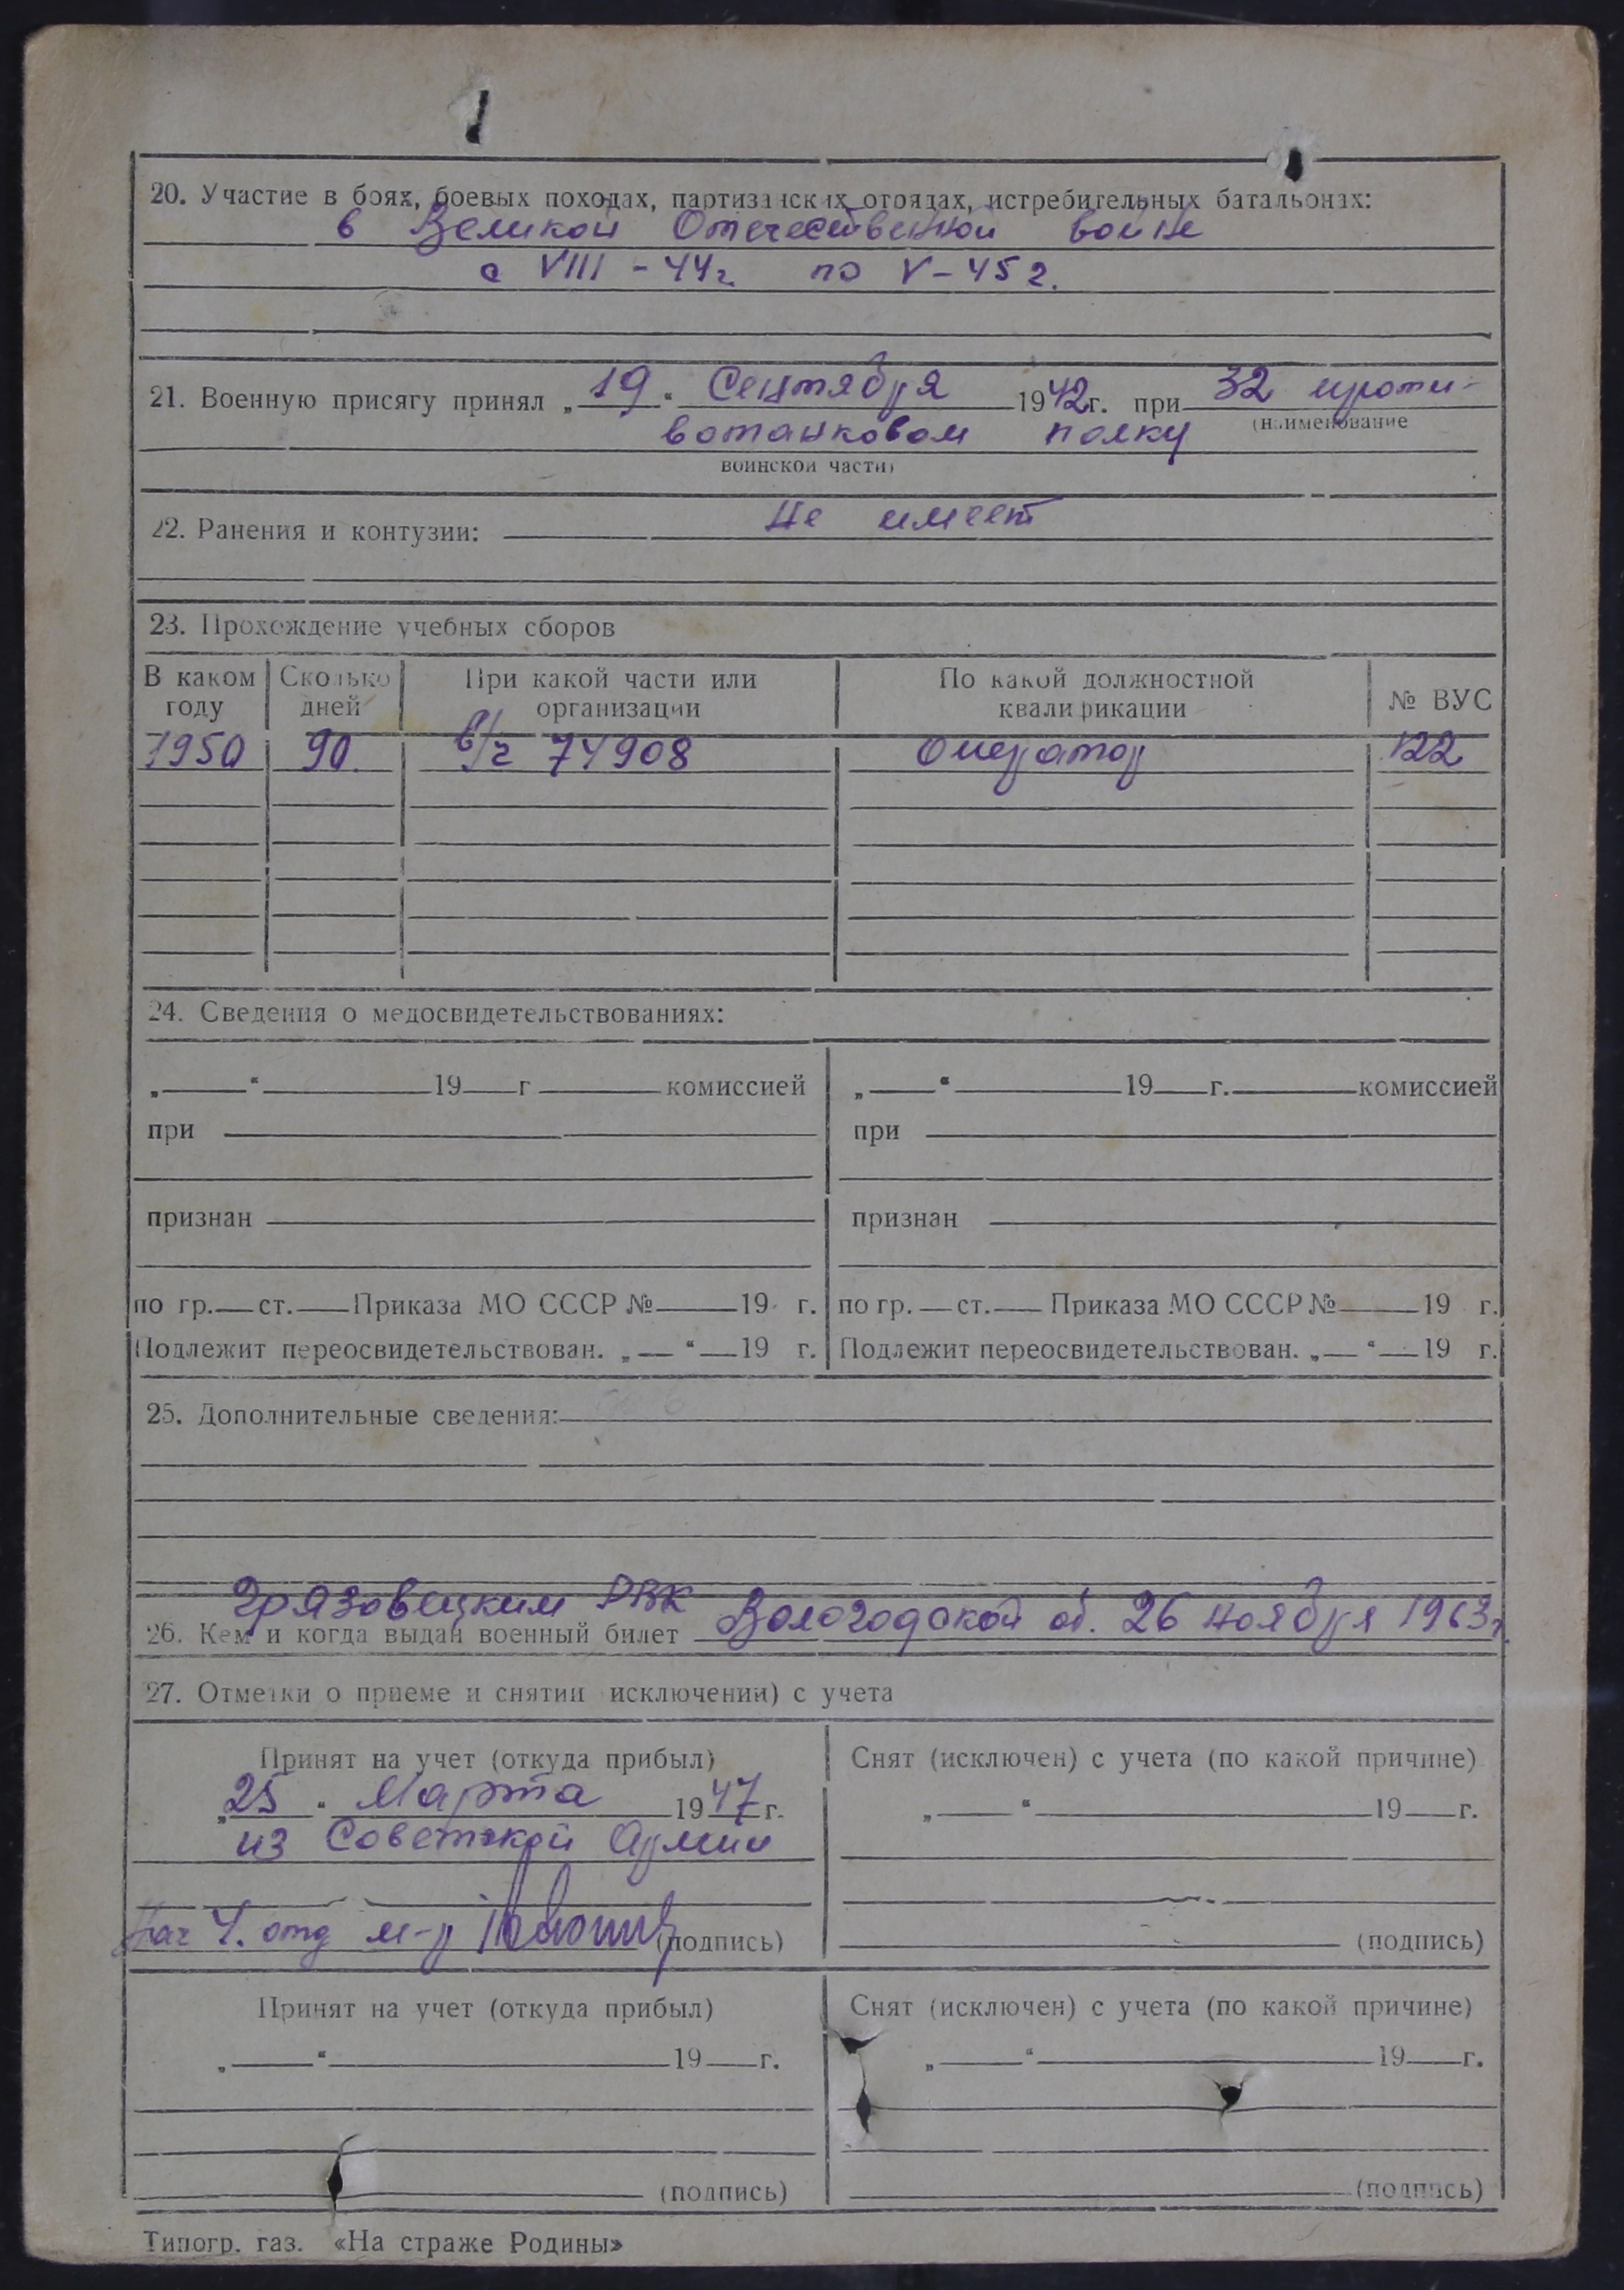 20. Участие в боях, боевых походах, партизанских отрядах, истребительных батальонах:
в Великой Отечественной войне
с VIII - 44 г. по V - 45 г.
21. Военную присягу принял „19“ Сентября 1942 г. при 32 проти-
(наименование
вотанковом полку
воинской части)
22. Ранения и контузии: Не имеет
23. Прохождение учебных сборов
В каком году Сколько дней При какой части или организации По какой должностной квалификации № ВУС
1950 90 в/ч 74908 Оператор 122
24. Сведения о медосвидетельствованиях:
„ “ 19 г комиссией „ “ 19 г. комиссией
при при
признан признан
по гр. ст. Приказа МО СССР № 19 г. по гр. ст. Приказа МО СССР № 19 г.
Подлежит переосвидетельствован. „ “ 19 г. Подлежит переосвидетельствован. „ “ 19 г.
25. Дополнительные сведения:
Грязовецким РВК
26. Кем и когда выдан военный билет Вологодской об. 26 ноября 1963 г.
27. Отметки о приеме и снятии исключении) с учета
Принят на учет (откуда прибыл) Снят (исключен) с учета (по какой причине)
„25“ Марта 1947 г. „ “ 19 г.
из Советской Армии
Нач 4. отд м-р (подпись) (подпись)
Принят на учет (откуда прибыл) Снят (исключен) с учета (по какой причине)
„ “ 19 г. „ “ 19 г.
(подпись) (подпись)
Типогр. газ. «На страже Родины»